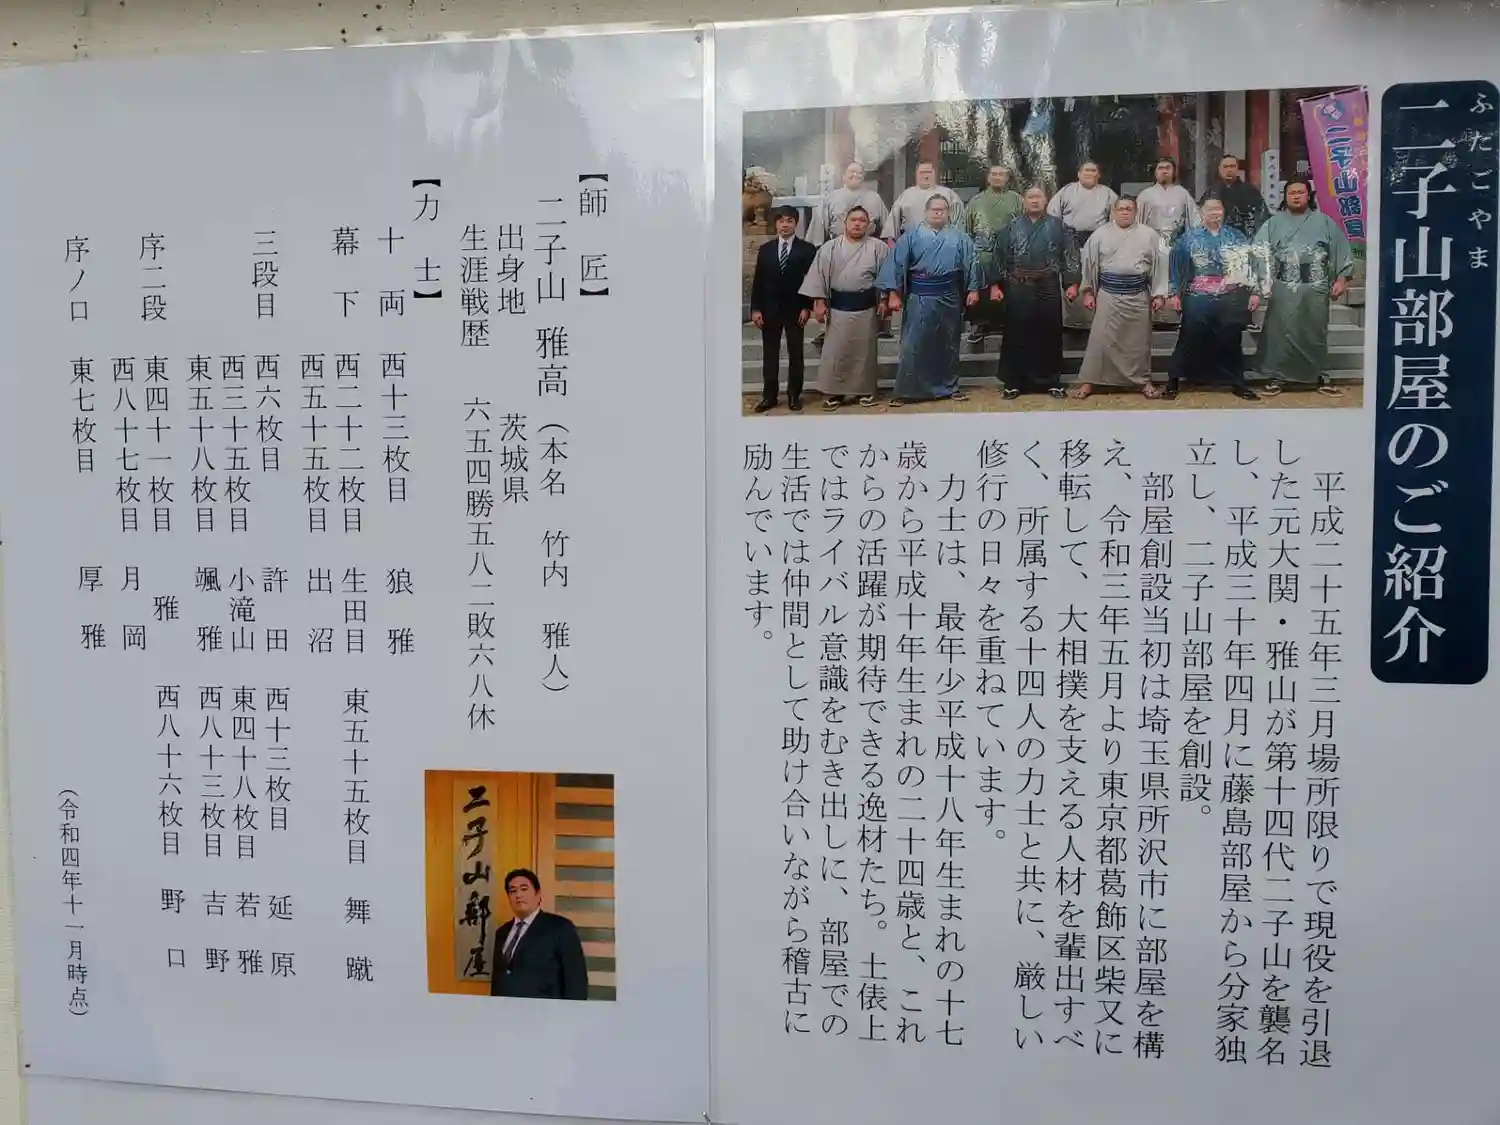 ふたごやま
二子山部屋のご紹介
二子山部屋
平成二十五年三月場所限りで現役を引退
した元大関・雅山が第十四代二子山を襲名
し、平成三十年四月に藤島部屋から分家独
立し、二子山部屋を創設。
部屋創設当初は埼玉県所沢市に部屋を構
え、令和三年五月より東京都葛飾区柴又に
移転して、大相撲を支える人材を輩出すべ
く、所属する十四人の力士と共に、厳しい
修行の日々を重ねています。
力士は、最年少平成十八年生まれの十七
歳から平成十年生まれの二十四歳と、これ
からの活躍が期待できる逸材たち。土俵上
ではライバル意識をむき出しに、部屋での
生活では仲間として助け合いながら稽古に
励んでいます。
【師 匠】
二子山 雅高（本名 竹内 雅人）
出身地 茨城県
生涯戦歴 六五四勝五八二敗六八休
二子山部屋
【力 士】
十両 西十三枚目 狼雅
幕下 西二十二枚目 生田目 東五十五枚目 舞蹴
西五十五枚目 出沼
三段目 西六枚目 許田 西十三枚目 延原
西三十五枚目 小滝山 東四十八枚目 若雅
東五十八枚目 颯雅 西八十三枚目 吉野
序二段 東四十一枚目 雅 西八十六枚目 野口
西八十七枚目 月岡
序ノ口 東七枚目 厚雅
（令和四年十一月時点）